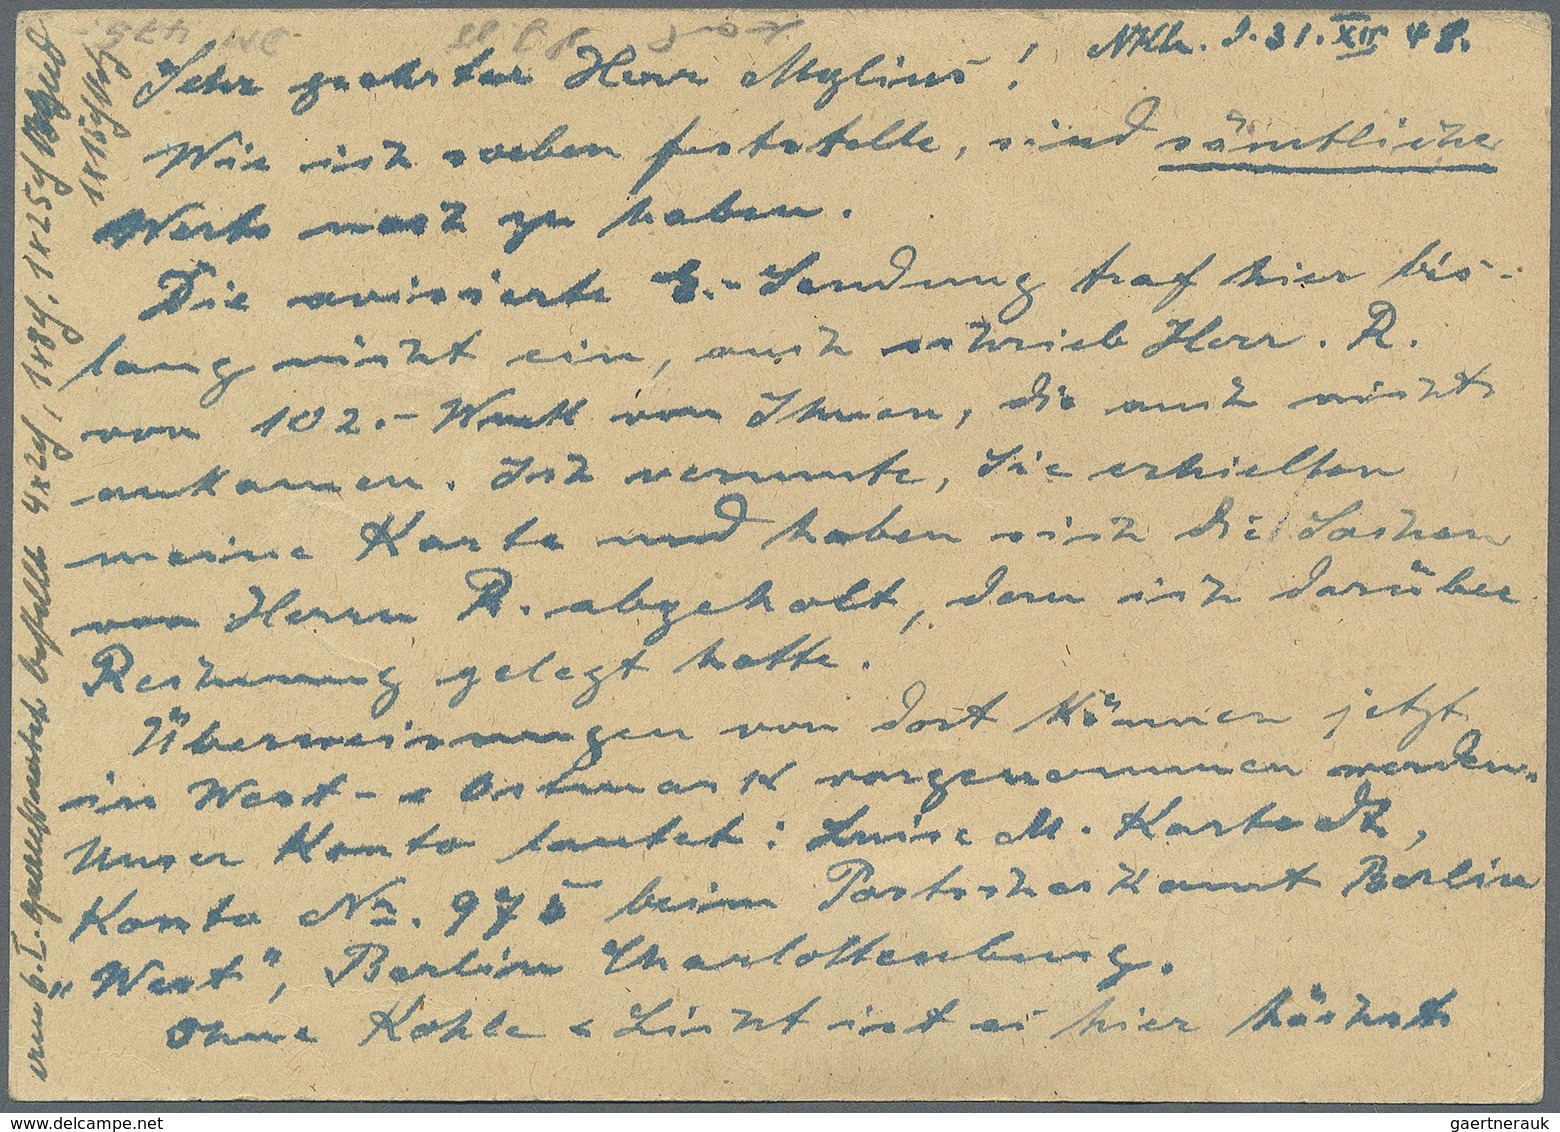 NKln. d. 31. XII 48.
Sehr geehrter Herr Mylius!
Wie ich soeben feststelle, sind sämtliche
Werte noch zu haben.
Die avisierte E.-Sendung traf hier bis-
lang nicht ein, auch schrieb Herr R.
von 102.- Mark von Ihnen, die auch nicht
ankamen. Ich vermute, Sie erhielten
meine Karte und haben sich die Sachen
von Herrn R. abgeholt, dem ich darüber
Rechnung gelegt hatte.
Überweisungen von dort können jetzt
in West- & Ostmark vorgenommen werden.
Unser Konto lautet: Luise M. Karstedt,
Konto Nr. 975 beim Postscheckamt Berlin
"West", Berlin Charlottenburg.
Ohne Kohle & Licht ist es hier höchst
am 6. I. 4x2d, 1x8d, 1x25d
1x15d
gaertnerauk